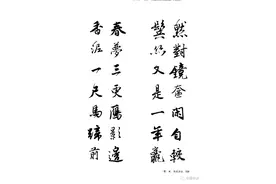 對鏡奩閑自較
鬢絲又是一年虧
春夢三更雁影邊
香泥一尺馬蹄前